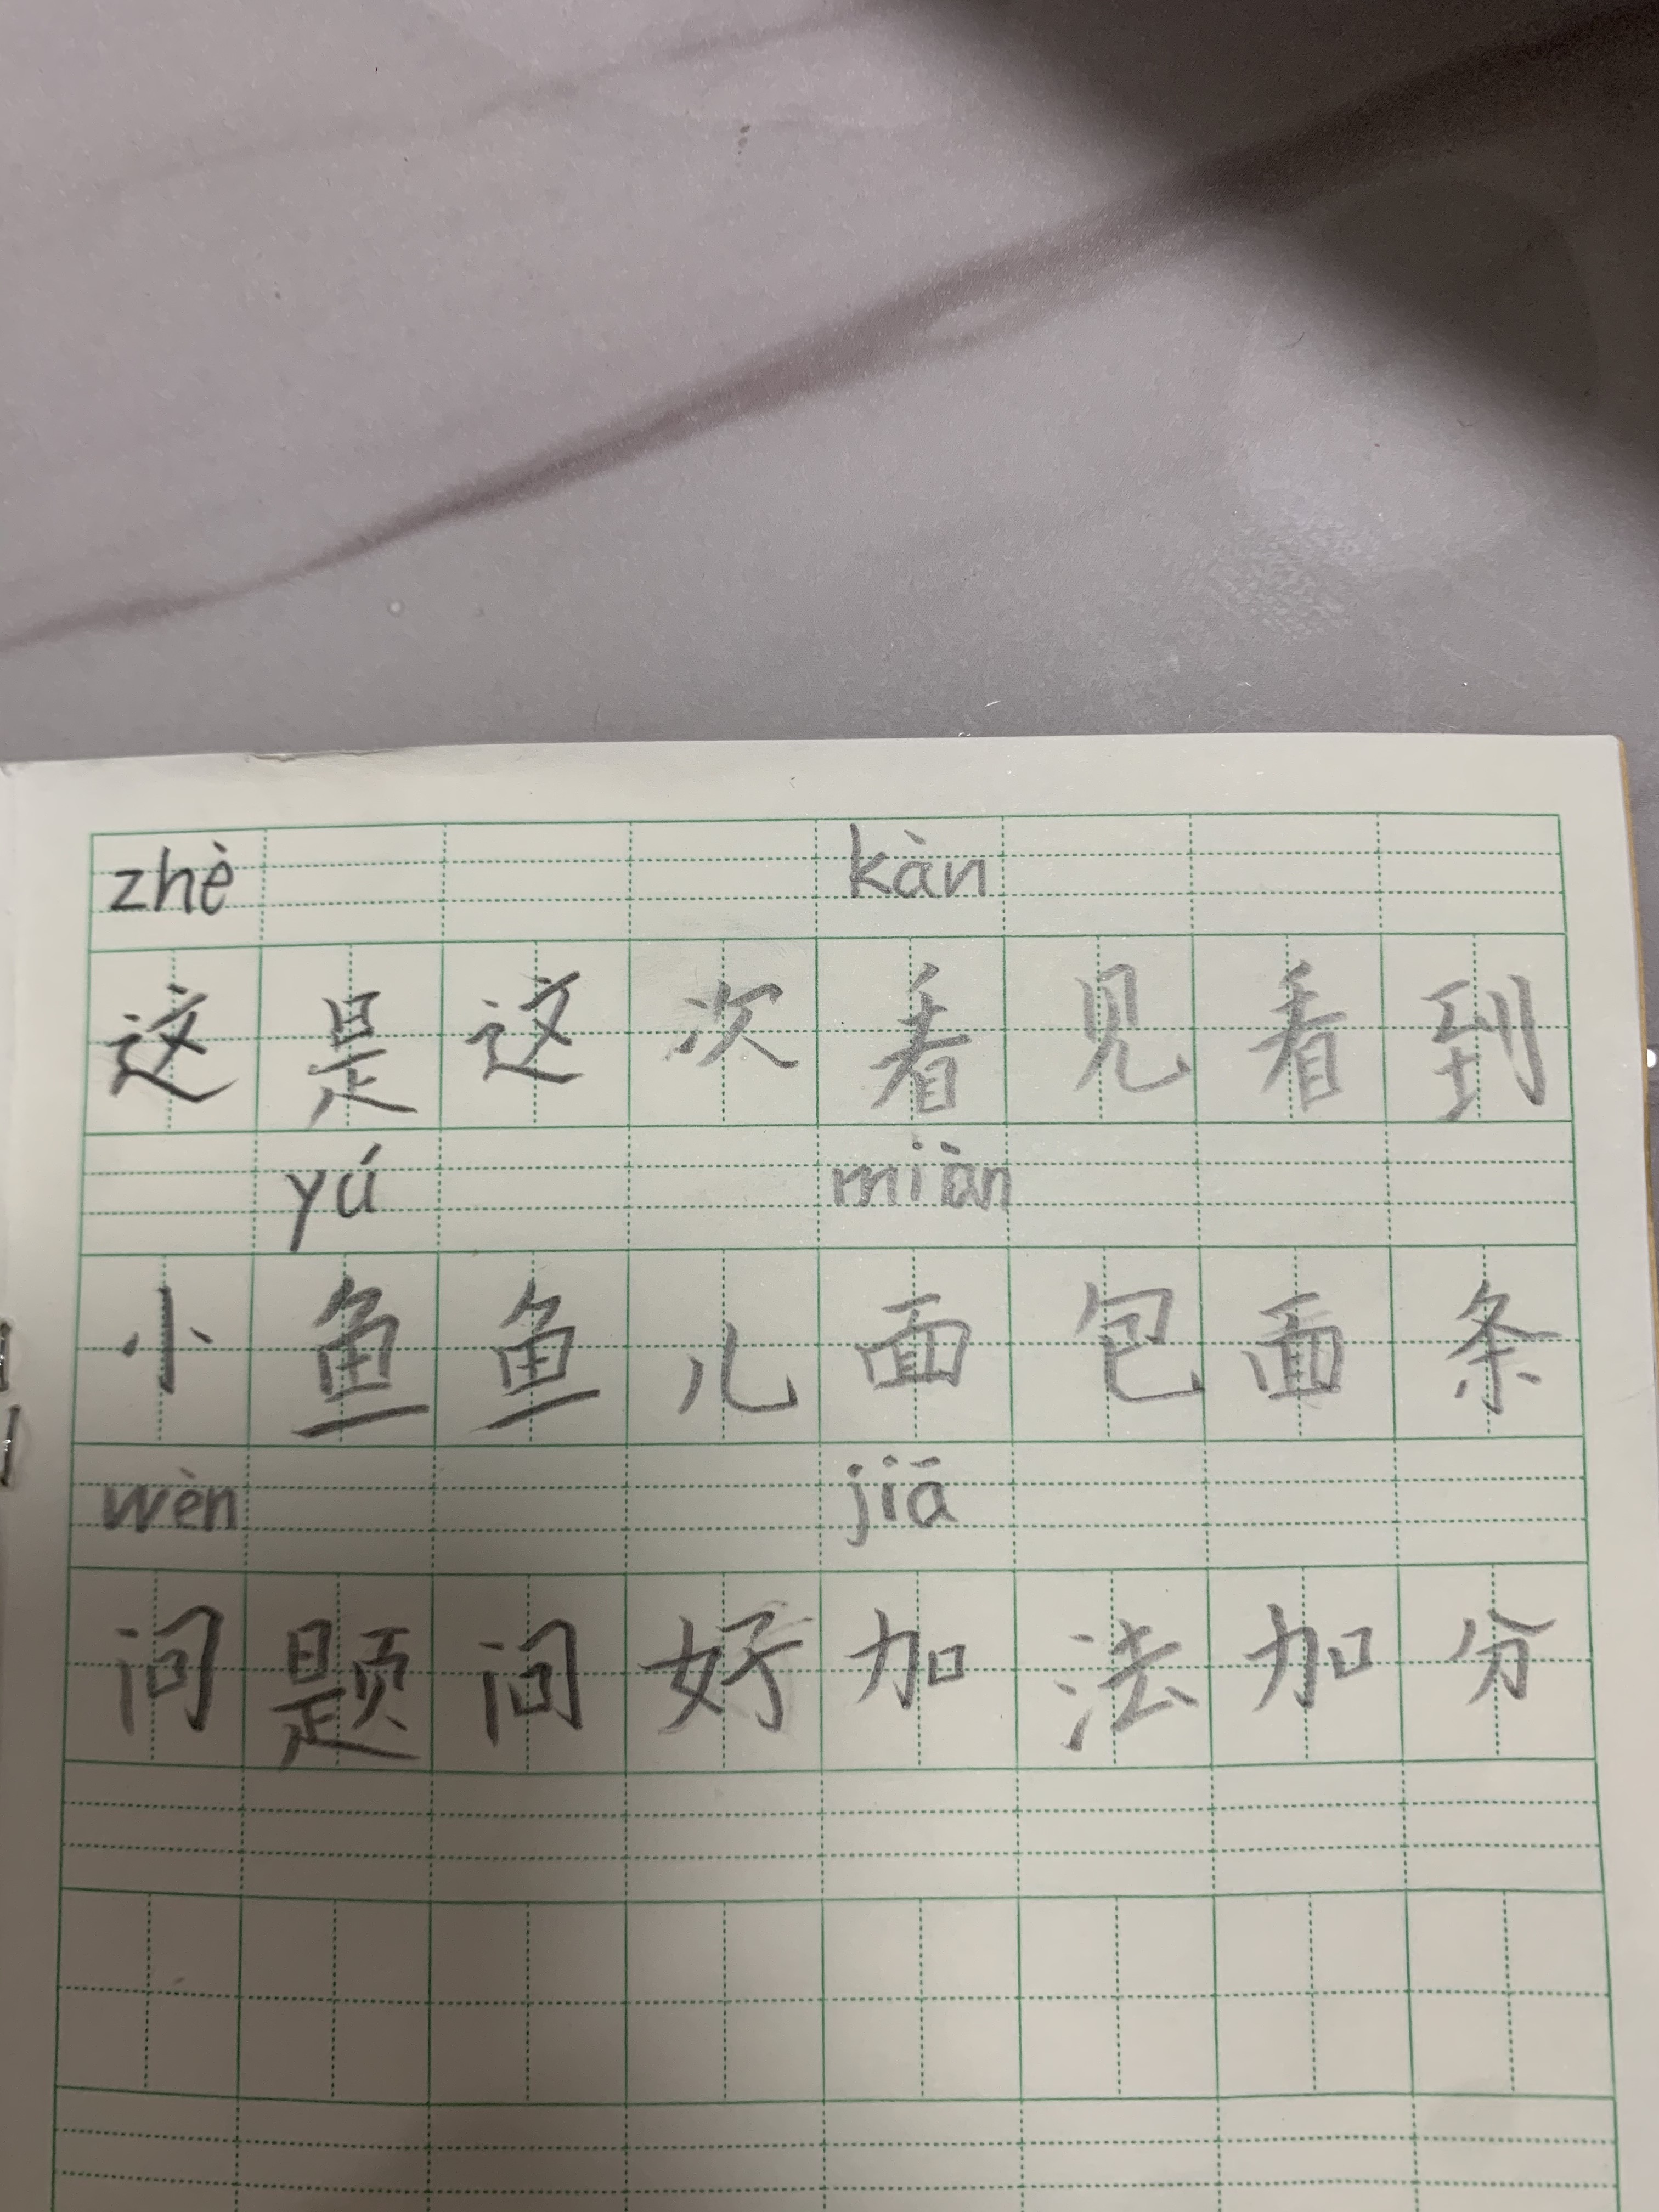 zhè kàn
这是这次看见看到
yú miàn
小鱼鱼儿面包面条
wèn jiā
问题问好加法加分